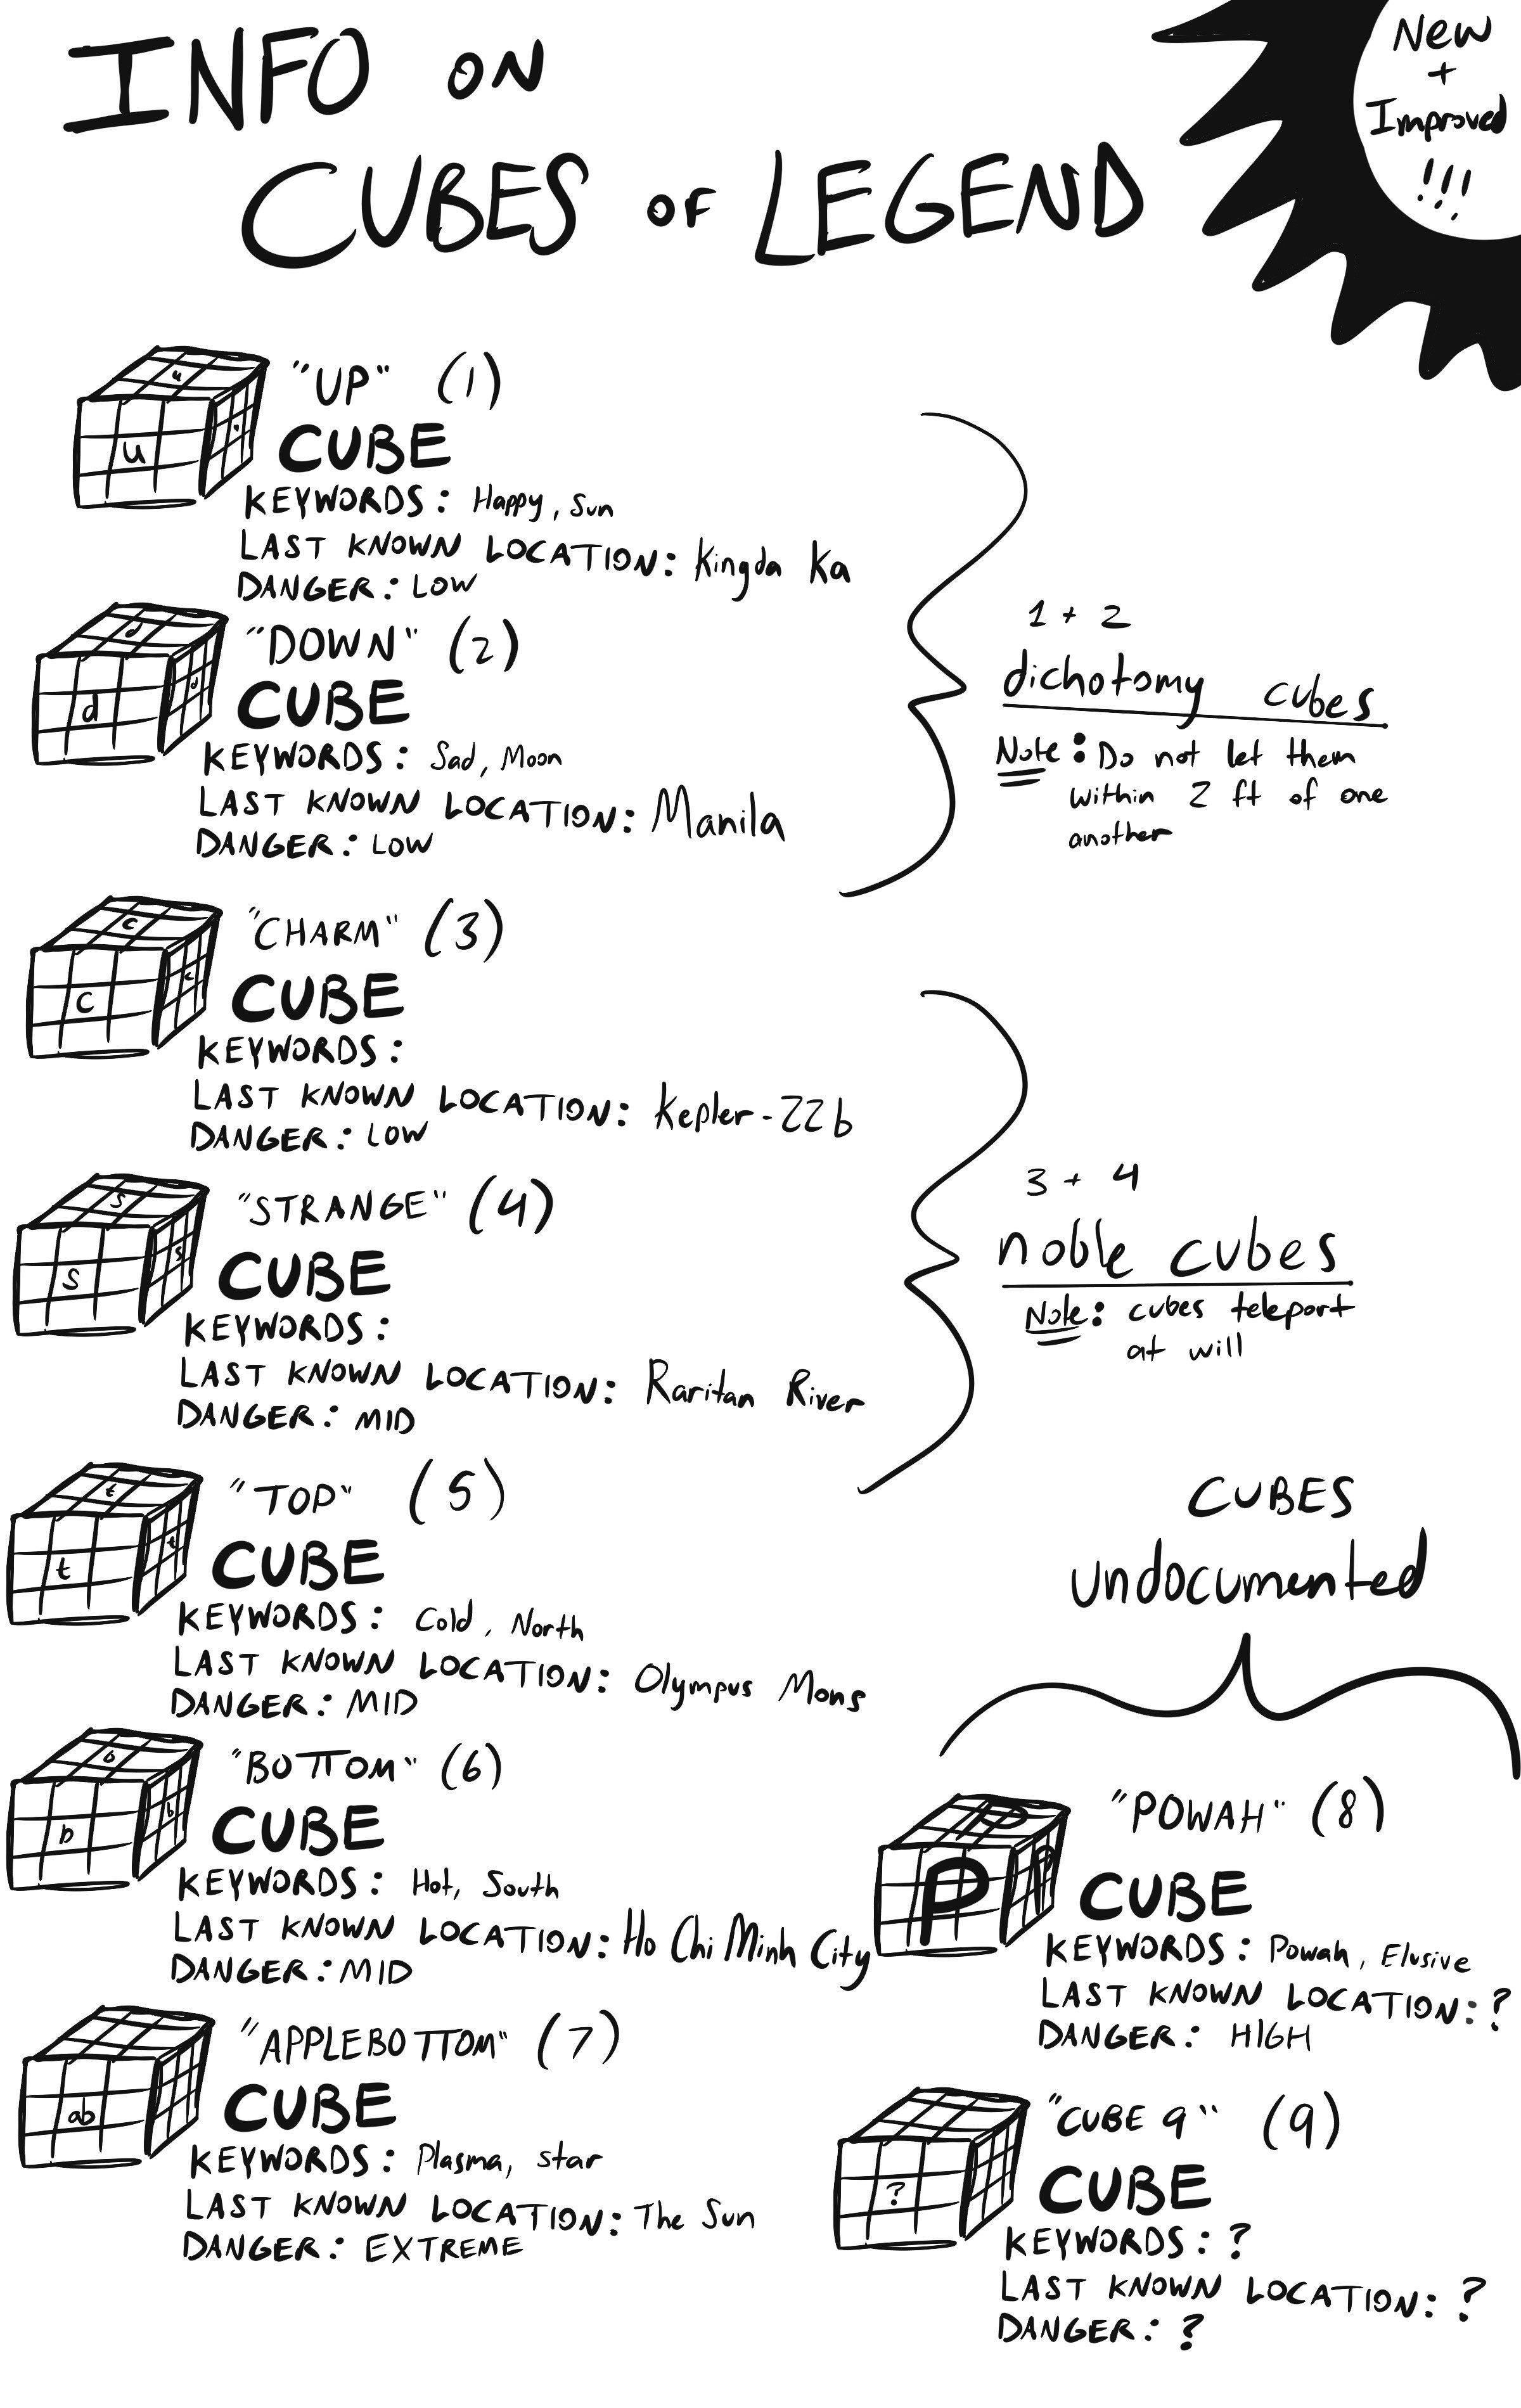 INFO ON
CUBES OF LEGEND
New
+
Improved
!!!
u
u
u
"UP" (1)
CUBE
KEYWORDS: Happy, Sun
LAST KNOWN LOCATION: Kingda Ka
DANGER: LOW
d
d
d
"DOWN" (2)
CUBE
KEYWORDS: Sad, Moon
LAST KNOWN LOCATION: Manila
DANGER: LOW
1 + 2
dichotomy cubes
Note: Do not let them
within 2 ft of one
another
c
c
c
"CHARM" (3)
CUBE
KEYWORDS:
LAST KNOWN LOCATION: Kepler-22b
DANGER: LOW
s
s
s
"STRANGE" (4)
CUBE
KEYWORDS:
LAST KNOWN LOCATION: Raritan River
DANGER: MID
3 + 4
noble cubes
Note: cubes teleport
at will
t
t
t
"TOP" (5)
CUBE
KEYWORDS: Cold, North
LAST KNOWN LOCATION: Olympus Mons
DANGER: MID
b
b
b
"BOTTOM" (6)
CUBE
KEYWORDS: Hot, South
LAST KNOWN LOCATION: Ho Chi Minh City
DANGER: MID
ab
"APPLEBOTTOM" (7)
CUBE
KEYWORDS: Plasma, star
LAST KNOWN LOCATION: The Sun
DANGER: EXTREME
CUBES
undocumented
P
P
P
"POWAH" (8)
CUBE
KEYWORDS: Powah, Elusive
LAST KNOWN LOCATION: ?
DANGER: HIGH
?
"CUBE 9" (9)
CUBE
KEYWORDS: ?
LAST KNOWN LOCATION: ?
DANGER: ?